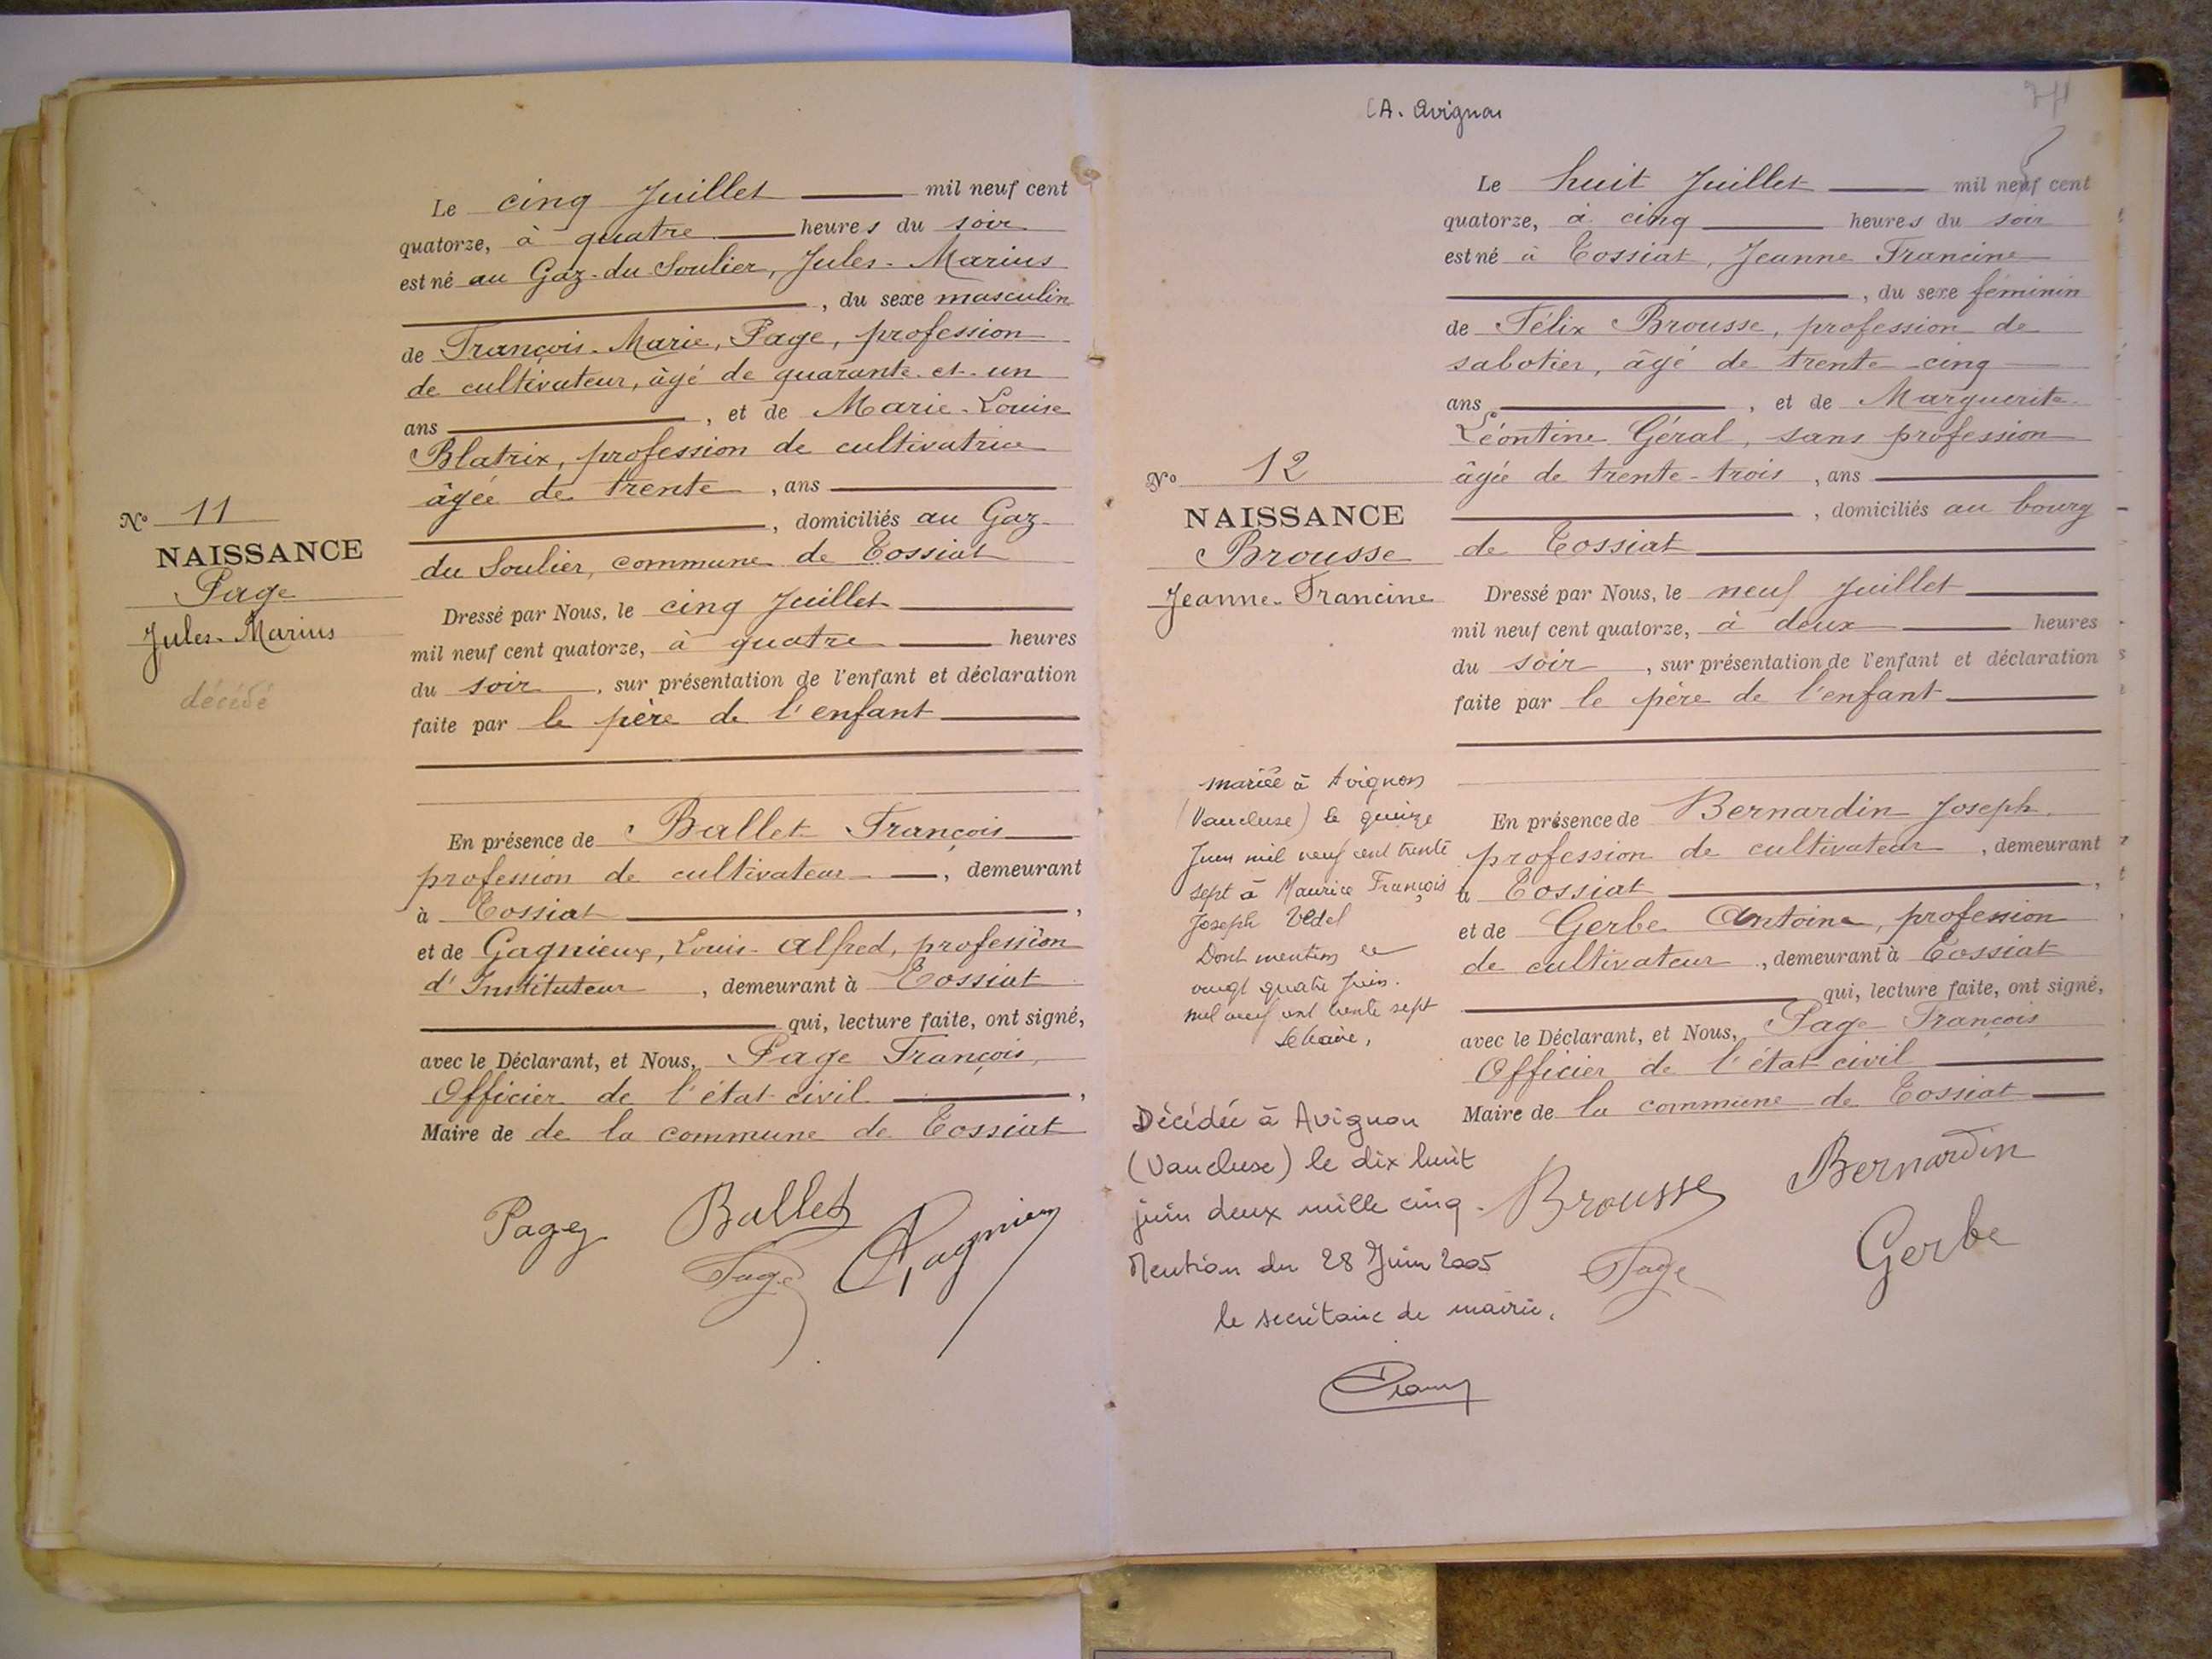 Le cinq Juillet mil neuf cent
quatorze, à quatre heures du soir
est né au Gaz-du-Soulier, Jules-Marius
, du sexe masculin
de François-Marie, Page, profession
de cultivateur, âgé de quarante-et-un
ans , et de Marie-Louise
Blatrix, profession de cultivatrice
âgée de trente , ans
, domiciliés au Gaz-
du Soulier, commune de Tossiat
N° 11
NAISSANCE
Page
Jules-Marius
décédé
Dressé par Nous, le cinq Juillet
mil neuf cent quatorze, à quatre heures
du soir , sur présentation de l'enfant et déclaration
faite par le père de l'enfant
En présence de Ballet François
profession de cultivateur , demeurant
à Tossiat ,
et de Gagnieux, Louis-Alfred, profession
d'Instituteur , demeurant à Tossiat
qui, lecture faite, ont signé,
avec le Déclarant, et Nous, Page François,
Officier de l'état civil ,
Maire de de la commune de Tossiat
Page Ballet
Page
(A. Avignon
Le huit Juillet mil neuf cent
quatorze, à cinq heures du soir
est né à Tossiat, Jeanne Francine
, du sexe féminin
de Félix Brousse, profession de
sabotier, âgé de trente-cinq
ans , et de Marguerite
Léontine Géral, sans profession
âgée de trente-trois , ans
, domiciliés au bourg
de Tossiat
N° 12
NAISSANCE
Brousse
Jeanne-Francine
Dressé par Nous, le neuf Juillet
mil neuf cent quatorze, à deux heures
du soir , sur présentation de l'enfant et déclaration
faite par le père de l'enfant
En présence de Bernardin Joseph
profession de cultivateur , demeurant
à Tossiat ,
et de Gerbe Antoine, profession
de cultivateur , demeurant à Tossiat
qui, lecture faite, ont signé,
avec le Déclarant, et Nous, Page François
Officier de l'état civil
Maire de la commune de Tossiat
mariée à Avignon
(Vaucluse) le quinze
Juin mil neuf cent trente
sept à Maurice François
Joseph Vedel
Dont mention le
vingt quatre Juin
mil neuf cent trente sept
Le Maire,
Décédée à Avignon
(Vaucluse) le dix huit
juin deux mille cinq.
Mention du 28 Juin 2005
le secrétaire de mairie,
Brousse Bernardin
Page Gerbe